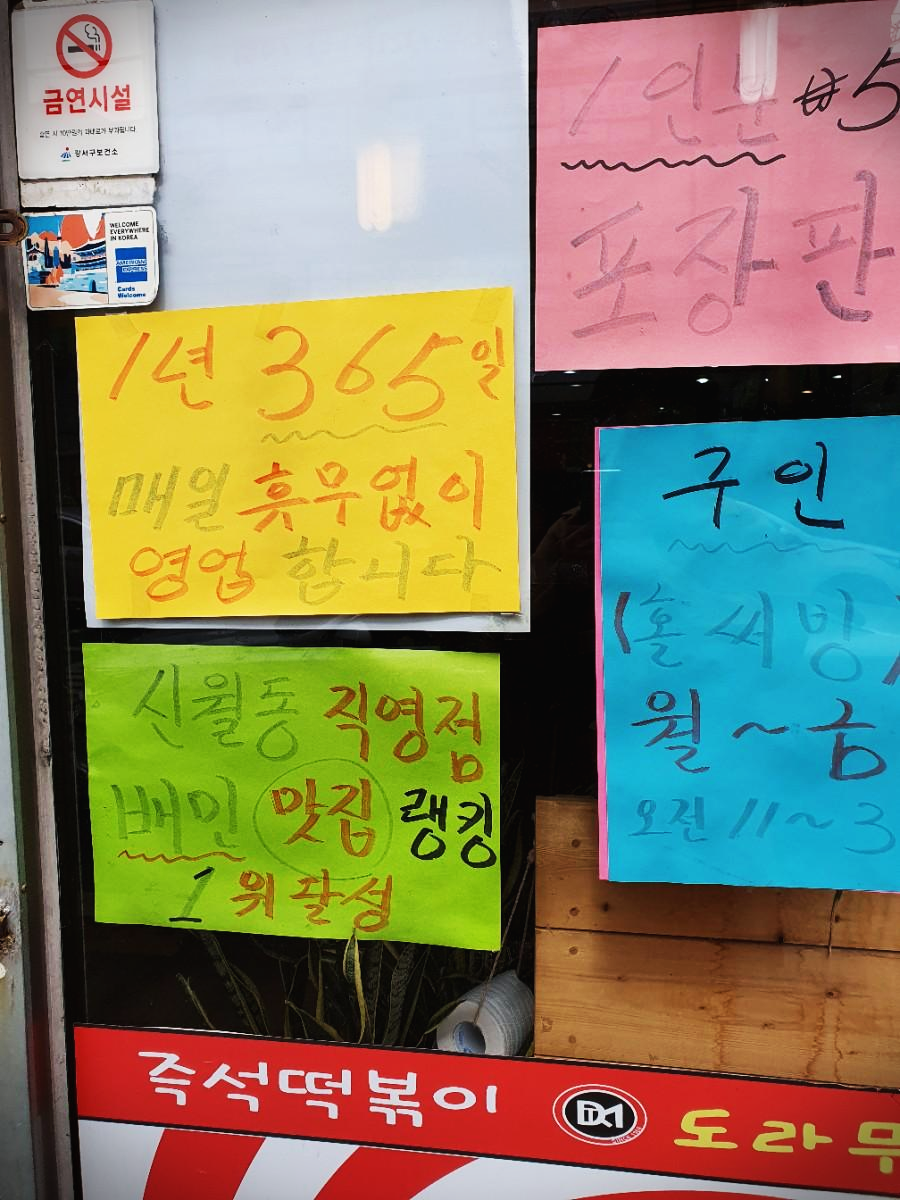 금연시설
강서구보건소
WELCOME
EVERYWHERE
IN KOREA
AMERICAN
EXPRESS
Cards
Welcome
1인분 #5
포장판
1년 365일
매일 휴무없이
영업 합니다
구인
(홀써빙)
월~금
오전 11~3
신월동 직영점
배민 맛집 랭킹
1위달성
즉석떡볶이
도라무